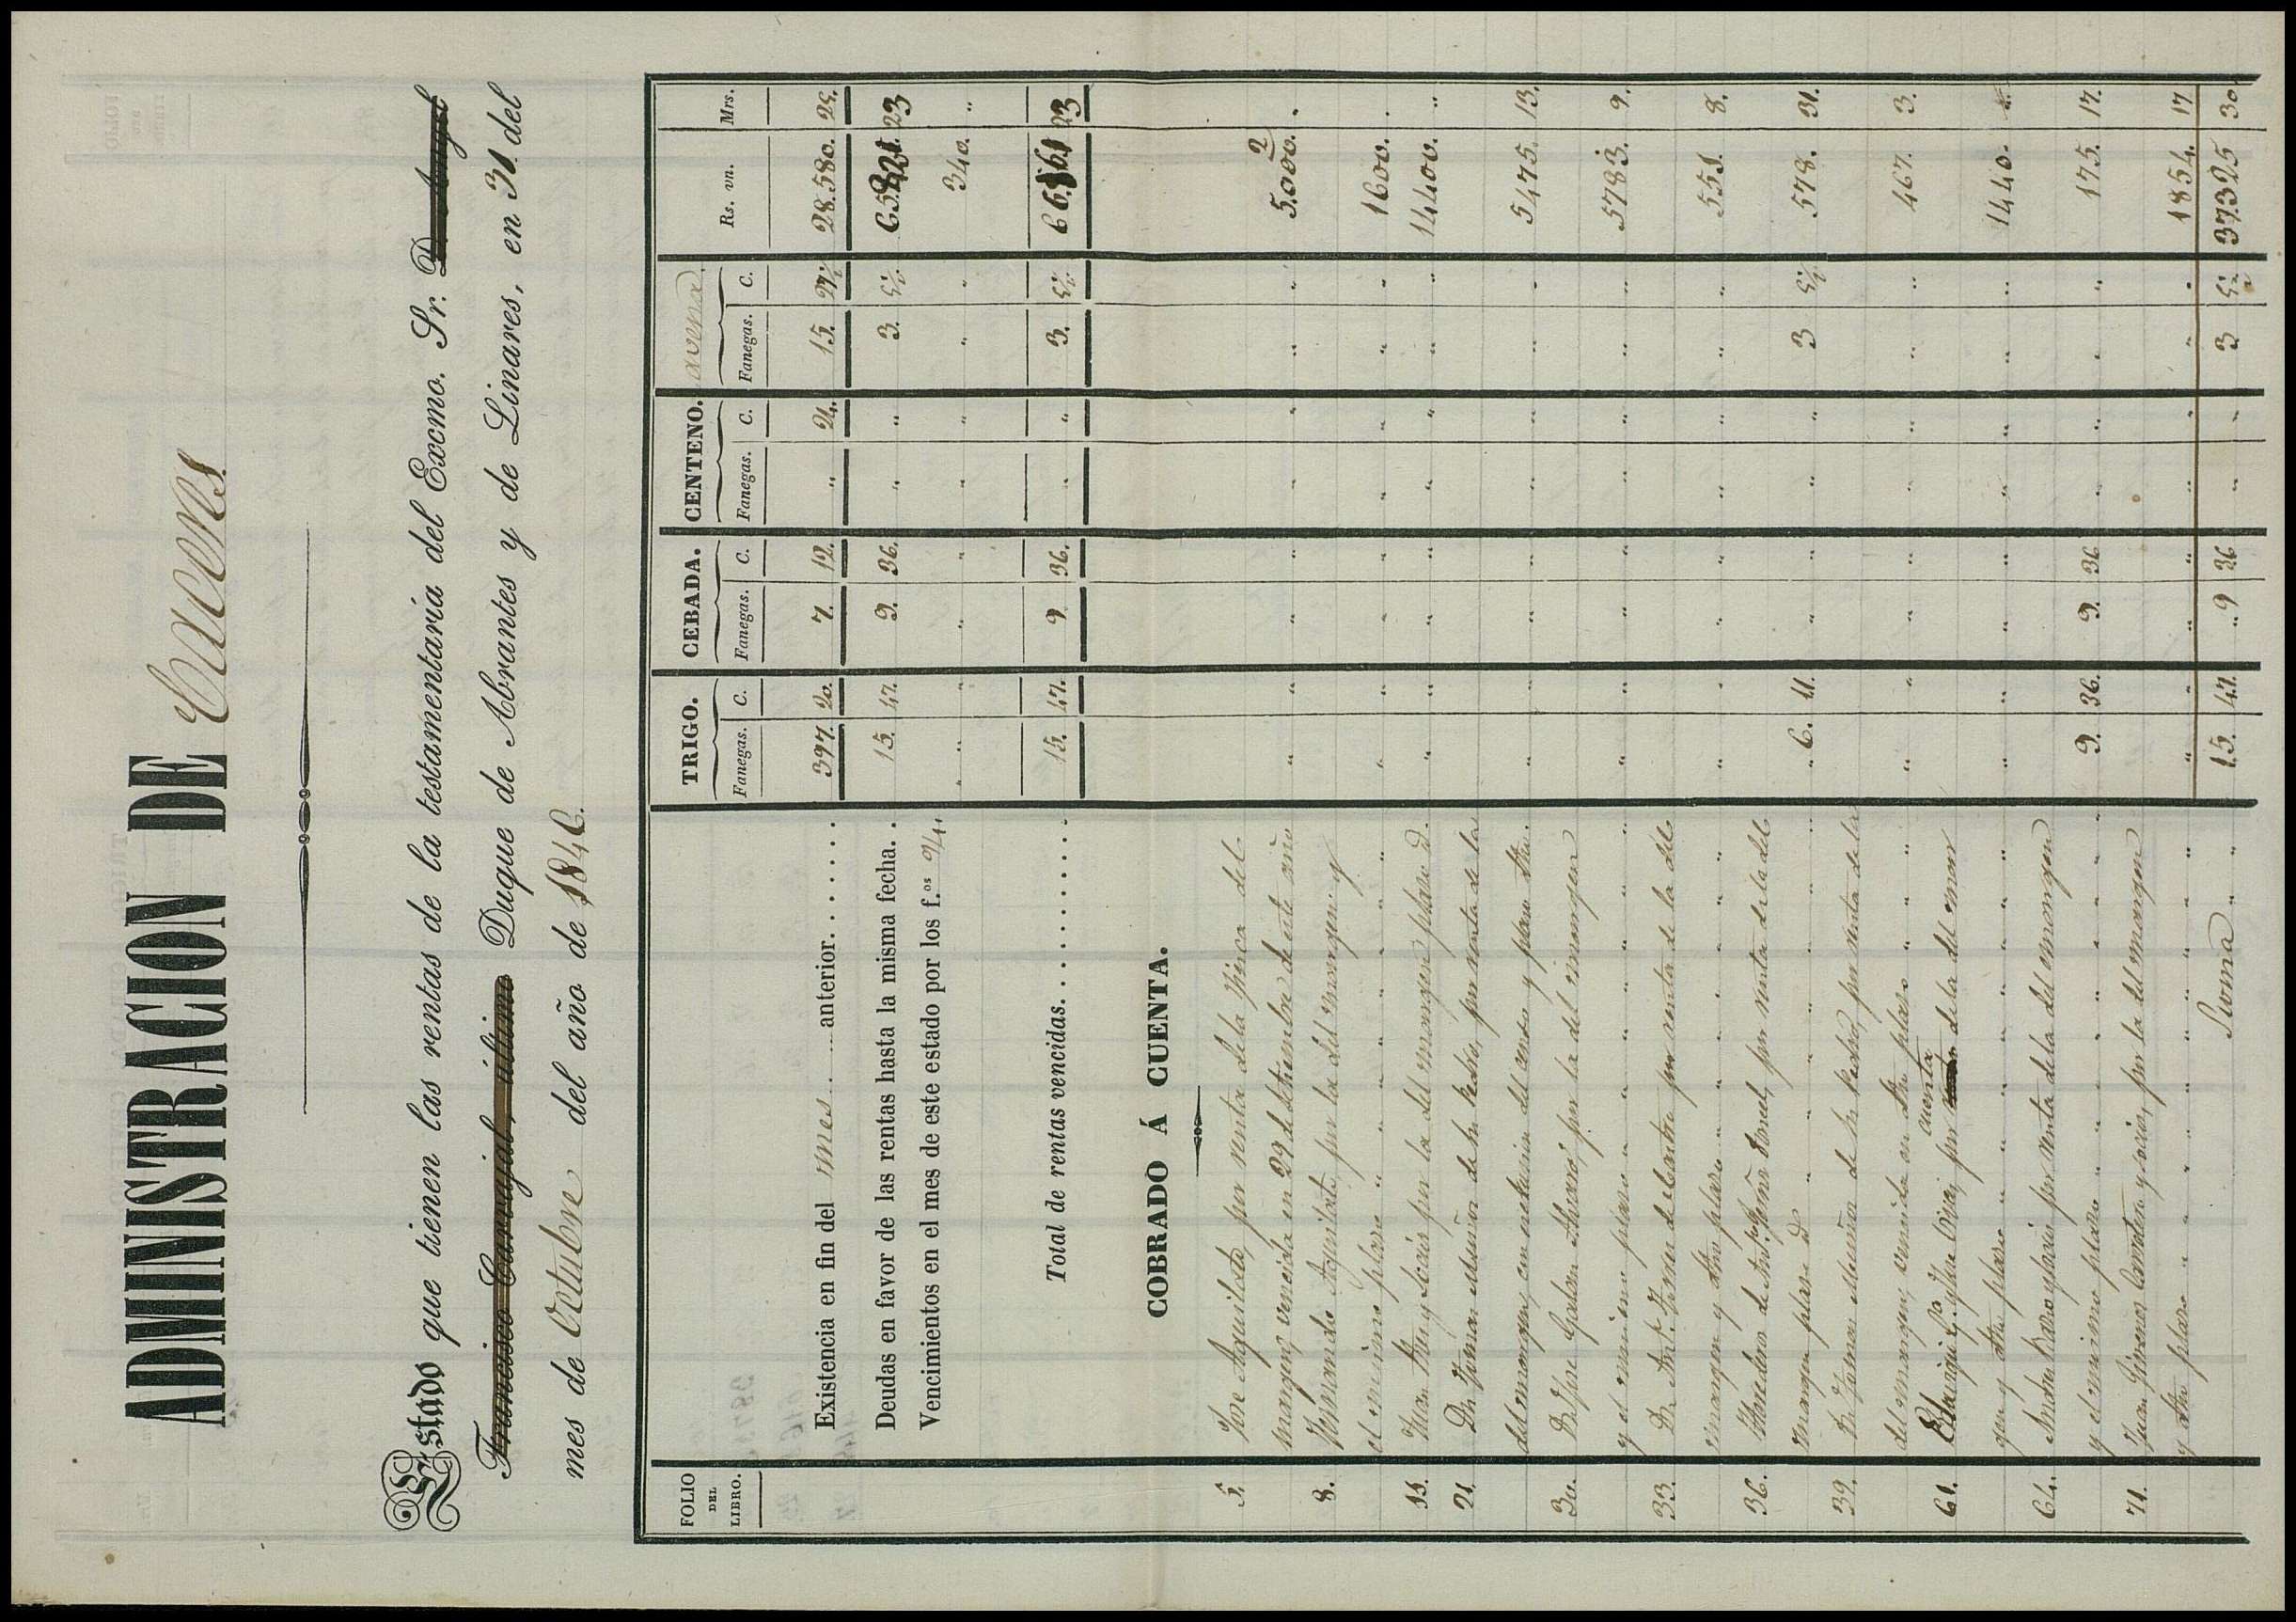 ADMINISTRACION DE Cuacens
Estado que tienen las rentas de la testamentaría del Excmo. Sr. D. Angel
Francisco Carvajal, último Duque de Abrantes y de Linares, en 31 del
mes de Octubre del año de 1846.
FOLIO DEL LIBRO. TRIGO. CEBADA. CENTENO. avena.
Fanegas. C. Fanegas. C. Fanegas. C. Fanegas. C. Rs. vn. Mrs.
Existencia en fin del mes anterior. 397. 20. 7. 12. " 21. 15. 28.580. 25.
Deudas en favor de las rentas hasta la misma fecha. 15. 47. 9. 36. " " 3. 5½. 23
Vencimientos en el mes de este estado por los f.os " " " " " " " " 340. "
Total de rentas vencidas. 15. 47. 9. 36. " " 3. 5½. 23
COBRADO Á CUENTA.
5. Jose Aguilado, por renta de la finca del
margen, vencida en 29 de setiembre de este año " " " " " " " " 5.000. "
8. Fernando Aguilado, por la del margen y
el mismo plazo " " " " " " " " 1600. "
11. Juan y socios por la del margen plazo id. " " " " " " " " 14400. "
21. Dn. Tomas Muñoz de Sn. Pedro, por renta de la
del margen, con inclusion del censo y plazo dho. " " " " " " " " 5475. 13.
30. Dn. Jose Galan Alvarez, por la del margen
y el mismo plazo " " " " " " " " 5783. 9.
33. Dn. Ant. de Castro por renta de la del
margen y dho plazo " " " " " " " " 551. 8.
36. Herederos de Ant. Peña por renta de la del
margen plazo id. 6. 11. " " " " 3 5½. 578. 31.
39. Dn. Tomas Muñoz de Sn. Pedro, por renta de la
del margen, vencida en dho plazo " " " " " " " " 467. 3.
61. por cuenta de la del margen
y dho plazo " " " " " " " " 1440. "
64. por renta de la del margen
y el mismo plazo 9. 36. 9. 36 " " " " 175. 17.
71. Juan y socios, por la del margen
y dho plazo " " " " " " " " 1854. 17
Suma 15. 47. 9 36 " " 3 5½ 37325 30